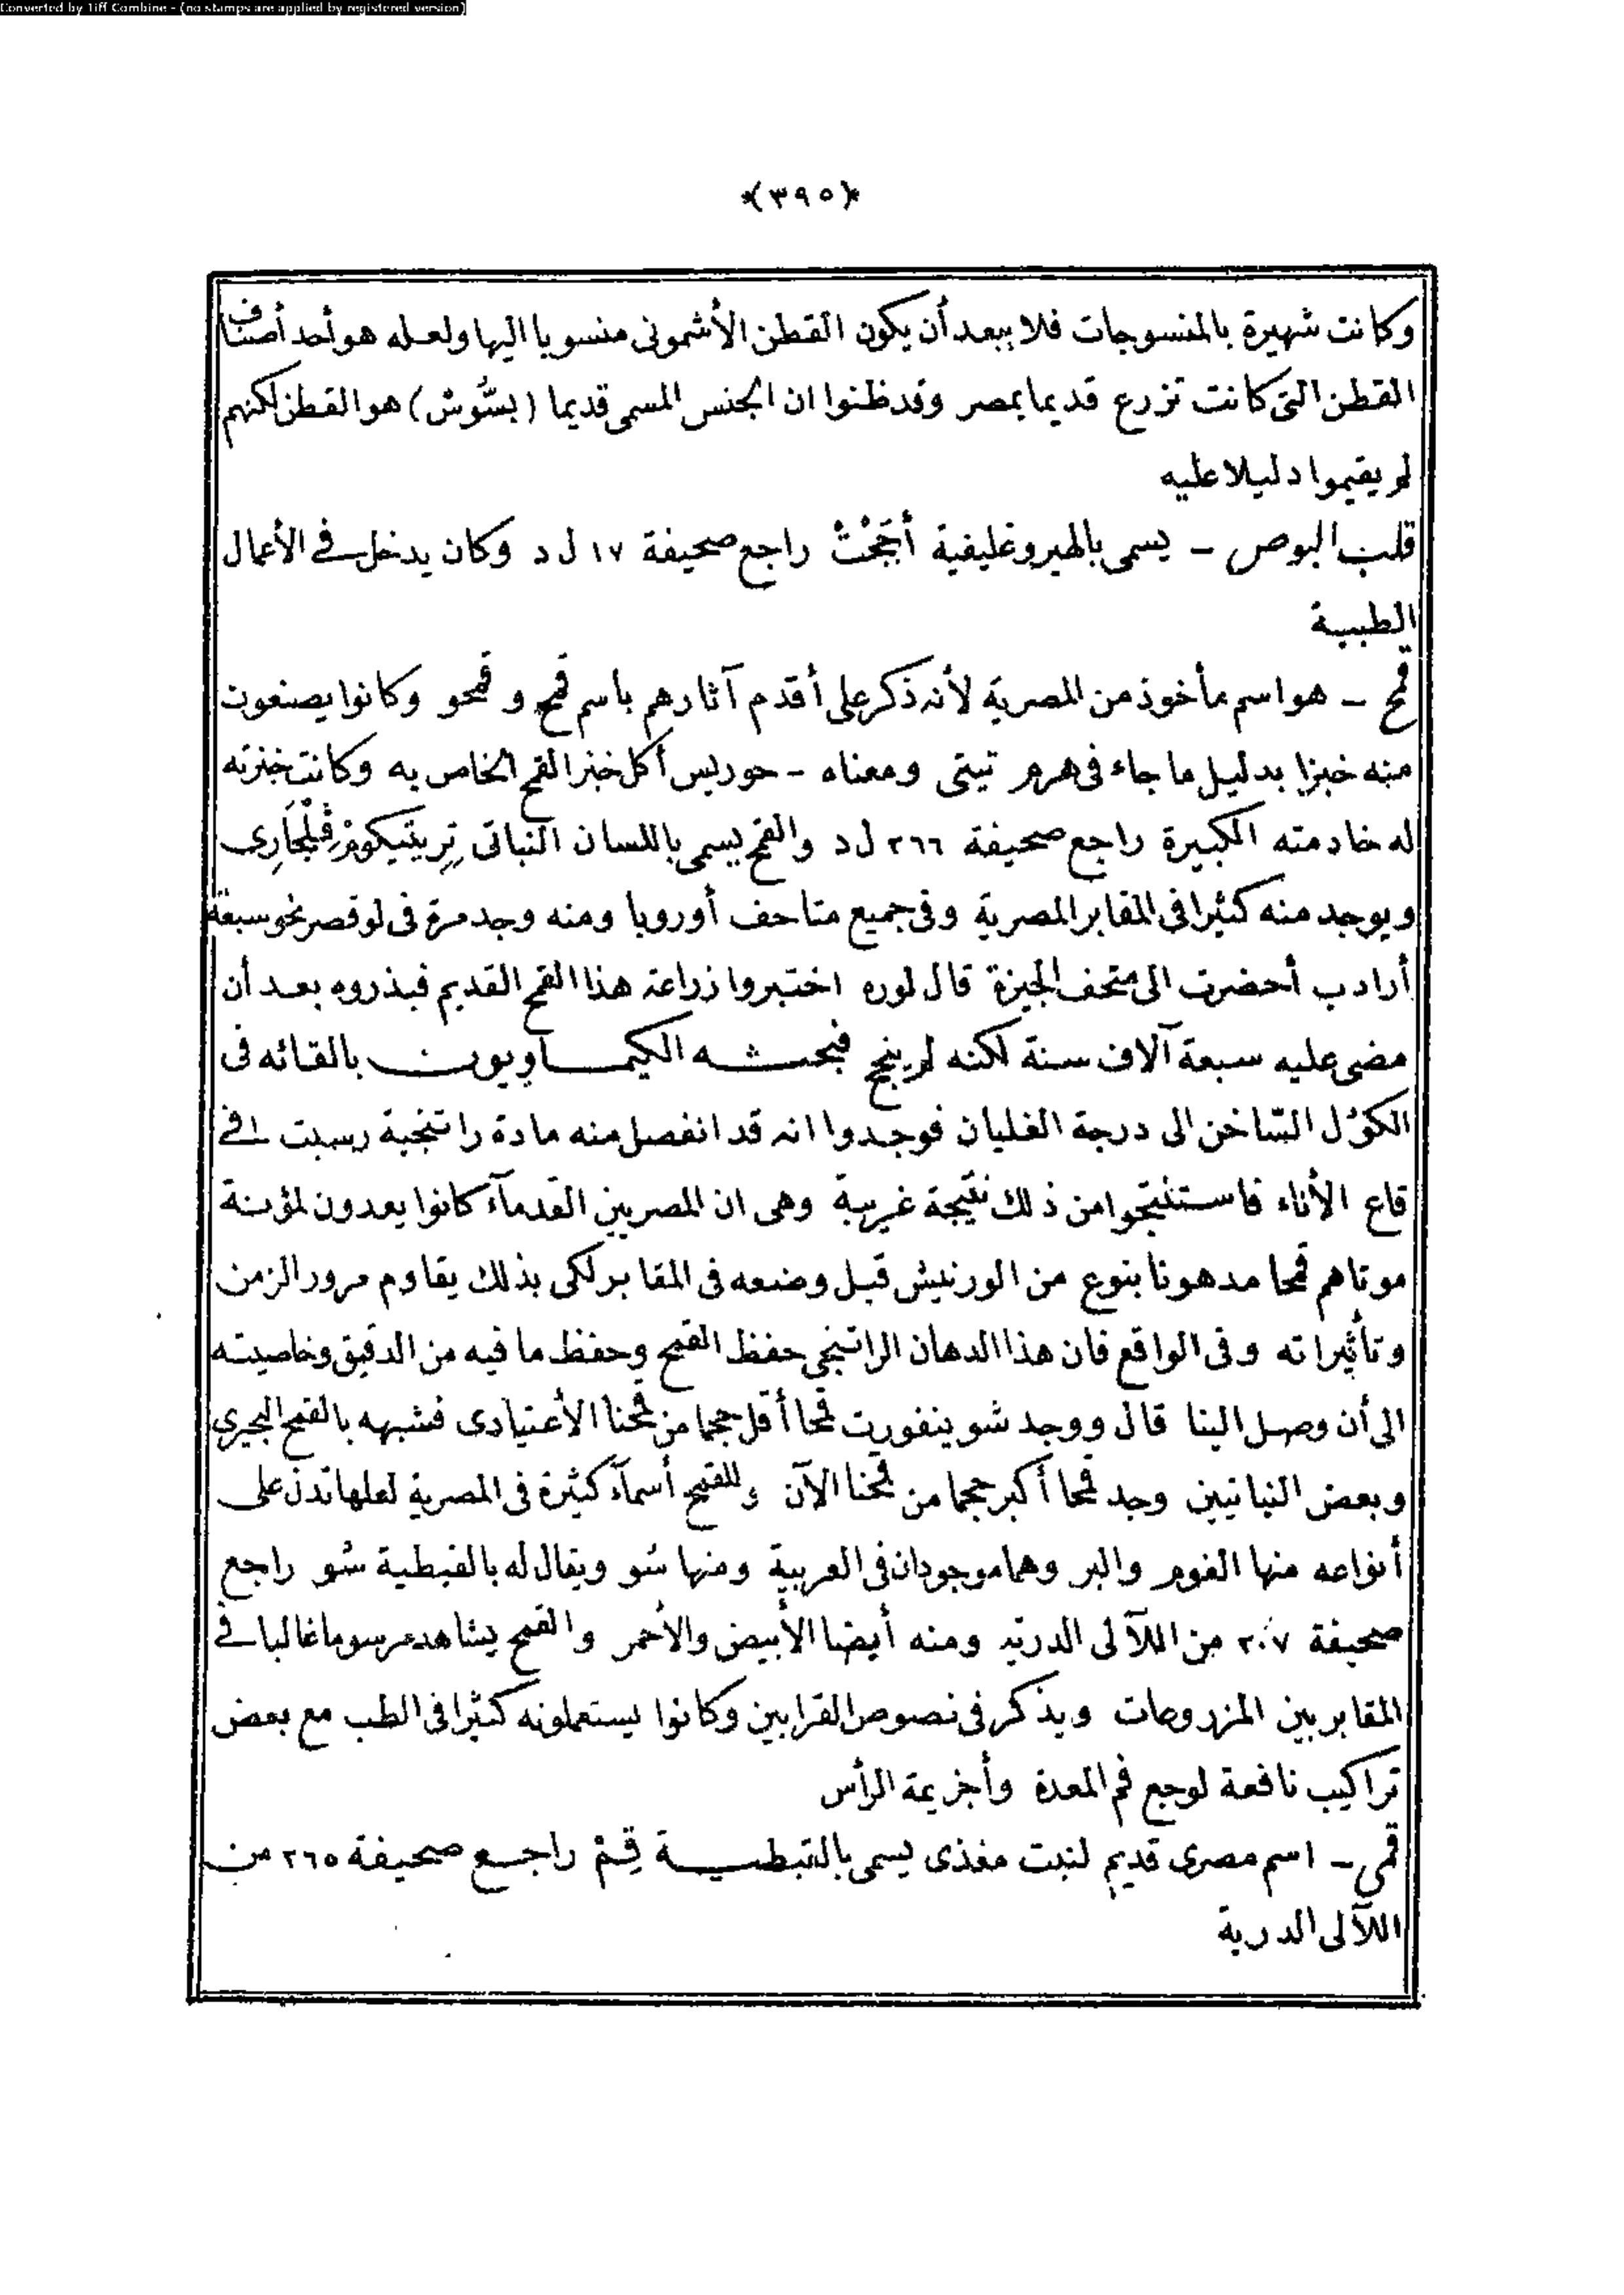 Converted by Tiff Combine - (no stamps are applied by registered version)
*(٣٩٥)*
وكانت شهيرة بالمنسوجات فلا يبعد أن يكون القطن الأشمونى منسوبا اليها ولعله هو أحد أصناف
القطن التى كانت تزرع قديما بمصر وقد ظنوا ان الجنس المسمى قديما (بسُّوش) هو القطن لكنهم
لم يقيموا دليلا عليه
قلب البوص ـ يسمى بالهيروغليفية راجع صحيفة ١٧ ل د وكان يدخل فى الأعمال
الطبية
قمح ـ هو اسم مأخوذ من المصرية لأنه ذكر على أقدم آثارهم باسم قمح و قمحو وكانوا يصنعون
منه خبزا بدليل ما جاء فى هرم تيتى ومعناه ـ حوريس أكل خبز القمح الخاص به وكانت خبزته
له خادمته الكبيرة راجع صحيفة ٢٦٦ ل د والقمح يسمى باللسان النباتى تِرِيتيكومْ ڤِلْجَارِى
ويوجد منه كثيرا فى المقابر المصرية وفى جميع متاحف أوروبا ومنه وجد مرة فى لوقصر نحو سبعة
أرادب أحضرت الى متحف الجيزة قال لوره اختبروا زراعة هذا القمح القديم فبذروه بعد أن
مضى عليه سبعة آلاف سنة لكنه لم ينجح فبحثه الكيماويون بالقائه فى
الكؤل السّاخن الى درجة الغليان فوجدوا انه قد انفصل منه مادة راتنجية رسبت فى
قاع الأناء فاستنتجوا من ذلك نتيجة غريبة وهى ان المصريين القدمآء كانوا يعدون لمؤنة
موتاهم قمحا مدهونا بنوع من الورنيش قبل وضعه فى المقابر لكى بذلك يقاوم مرور الزمن
وتأثيراته وفى الواقع فان هذا الدهان الراتنجى حفظ القمح وحفظ ما فيه من الدقيق وخاصيته
الى أن وصل الينا قال ووجد شوينفورت قمحا أقل حجما من قمحنا الأعتيادى فشبهه بالقمح البحيرى
وبعض النباتيين وجد قمحا أكبر حجما من قمحنا الآن وللقمح أسمآء كثيرة فى المصرية لعلها تدل على
أنواعه منها الفوم والبر وهما موجودان فى العربية ومنها سُو ويقال له بالقبطية سُو راجع
صحيفة ٢٠٧ من اللآلى الدرية ومنه أيضا الأبيض والأحمر والقمح يشاهد مرسوما غالبا فى
المقابر بين المزروعات ويذكر فى نصوص القرابين وكانوا يستعملونه كثيرا فى الطب مع بعض
تراكيب نافعة لوجع فم المعدة وأخزيمة الرأس
قمى ـ اسم مصرى قديم لنبت مغذى يسمى بالقبطية قِمْ راجع صحيفة ٢٦٥ من
اللآلى الدرية